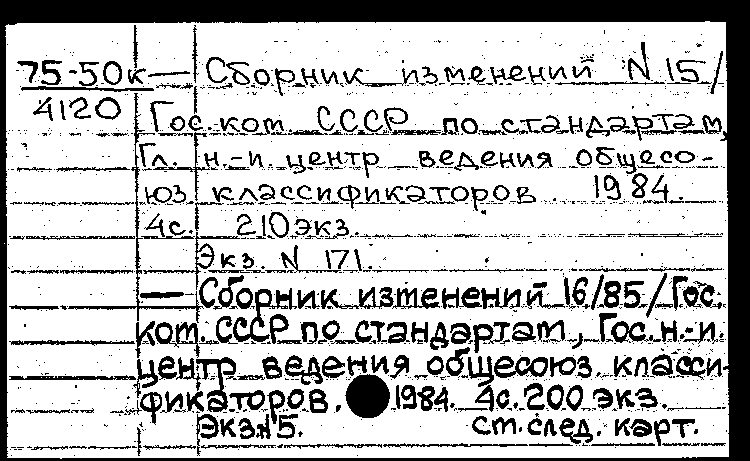 75-50к — Сборник изменений N 15/
4120 Гос. ком. СССР по стандартам,
Гл. н.-и. центр ведения общесо-
юз. классификаторов. 1984.
4с. 210 экз.
Экз. N 171.
— Сборник изменений 16/85/Гос.
ком. СССР по стандартам, Гос. н.-и.
центр ведения общесоюз. класси-
фикаторов. 1984. 4с. 200 экз.
Экз. N 5. см. след. карт.